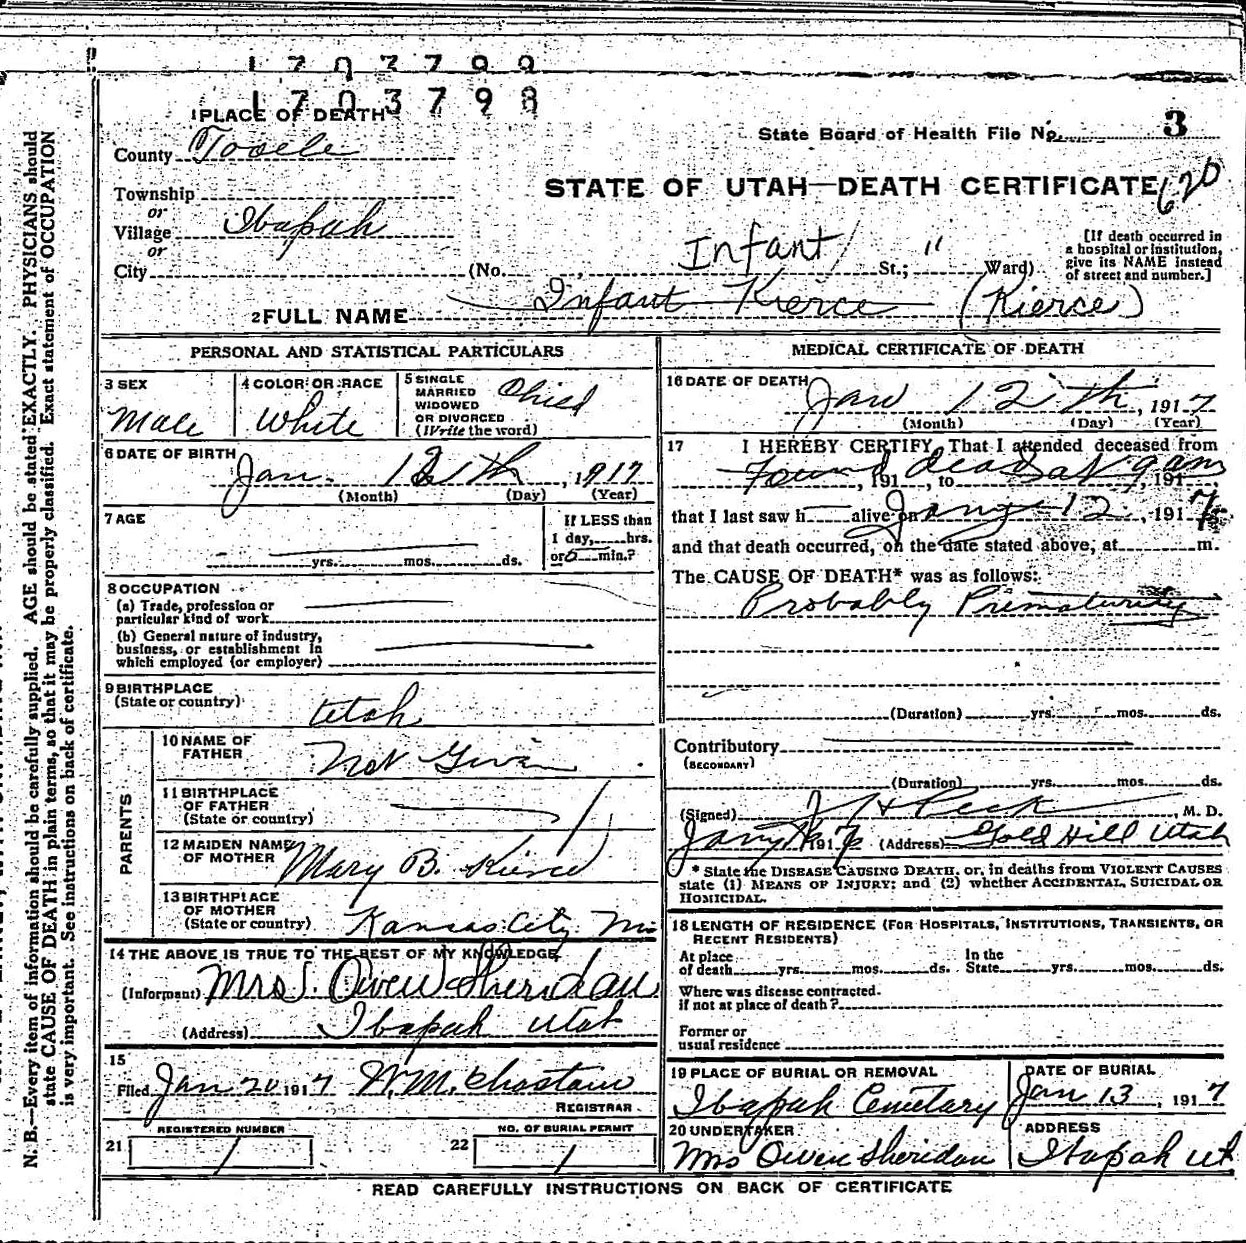 1703799
1703798
1 PLACE OF DEATH
State Board of Health File No. 3
County Tooele
STATE OF UTAH—DEATH CERTIFICATE 620
Township
or
Village Ibapah
or
City (No. Infant St.; " Ward)
[If death occurred in
a hospital or institution,
give its NAME instead
of street and number.]
2 FULL NAME Infant Kierce (Kierce)
PERSONAL AND STATISTICAL PARTICULARS
3 SEX
Male
4 COLOR OR RACE
White
5 SINGLE
MARRIED
WIDOWED
OR DIVORCED
(Write the word)
Child
6 DATE OF BIRTH
Jan. 12th, 1917
(Month) (Day) (Year)
7 AGE
yrs. mos. ds.
If LESS than
1 day, hrs.
or 0 min.?
8 OCCUPATION
(a) Trade, profession or
particular kind of work
(b) General nature of industry,
business, or establishment in
which employed (or employer)
9 BIRTHPLACE
(State or country)
Utah
PARENTS
10 NAME OF
FATHER
Not Given
11 BIRTHPLACE
OF FATHER
(State or country)
12 MAIDEN NAME
OF MOTHER
Mary B. Kierce
13 BIRTHPLACE
OF MOTHER
(State or country)
Kansas City Mo
14 THE ABOVE IS TRUE TO THE BEST OF MY KNOWLEDGE
(Informant) Mrs J. Owen Sheridan
(Address) Ibapah Utah
15
Filed Jan 20 1917 W. M. Chastain
REGISTRAR
REGISTERED NUMBER
21 1
NO. OF BURIAL PERMIT
22 1
MEDICAL CERTIFICATE OF DEATH
16 DATE OF DEATH
Jan 12th, 1917
(Month) (Day) (Year)
17 I HEREBY CERTIFY, That I attended deceased from
Found, 191 , to dead at 9 am, 191
that I last saw h alive on Jany 12, 1917
and that death occurred, on the date stated above, at m.
The CAUSE OF DEATH* was as follows:
Probably Prematurity
(Duration) yrs. mos. ds.
Contributory
(SECONDARY)
(Duration) yrs. mos. ds.
(Signed) J H Peck, M. D.
Jany 1917 (Address) Gold Hill Utah
* State the DISEASE CAUSING DEATH, or, in deaths from VIOLENT CAUSES
state (1) MEANS OF INJURY; and (2) whether ACCIDENTAL, SUICIDAL OR
HOMICIDAL.
18 LENGTH OF RESIDENCE (FOR HOSPITALS, INSTITUTIONS, TRANSIENTS, OR
RECENT RESIDENTS)
At place
of death yrs. mos. ds.
In the
State yrs. mos. ds.
Where was disease contracted.
if not at place of death?
Former or
usual residence
19 PLACE OF BURIAL OR REMOVAL
Ibapah Cemetary
DATE OF BURIAL
Jan 13, 1917
20 UNDERTAKER
Mrs Owen Sheridan
ADDRESS
Ibapah Ut
READ CAREFULLY INSTRUCTIONS ON BACK OF CERTIFICATE
N. B.—Every item of information should be carefully supplied. AGE should be stated EXACTLY. PHYSICIANS should
state CAUSE OF DEATH in plain terms, so that it may be properly classified. Exact statement of OCCUPATION
is very important. See instructions on back of certificate.